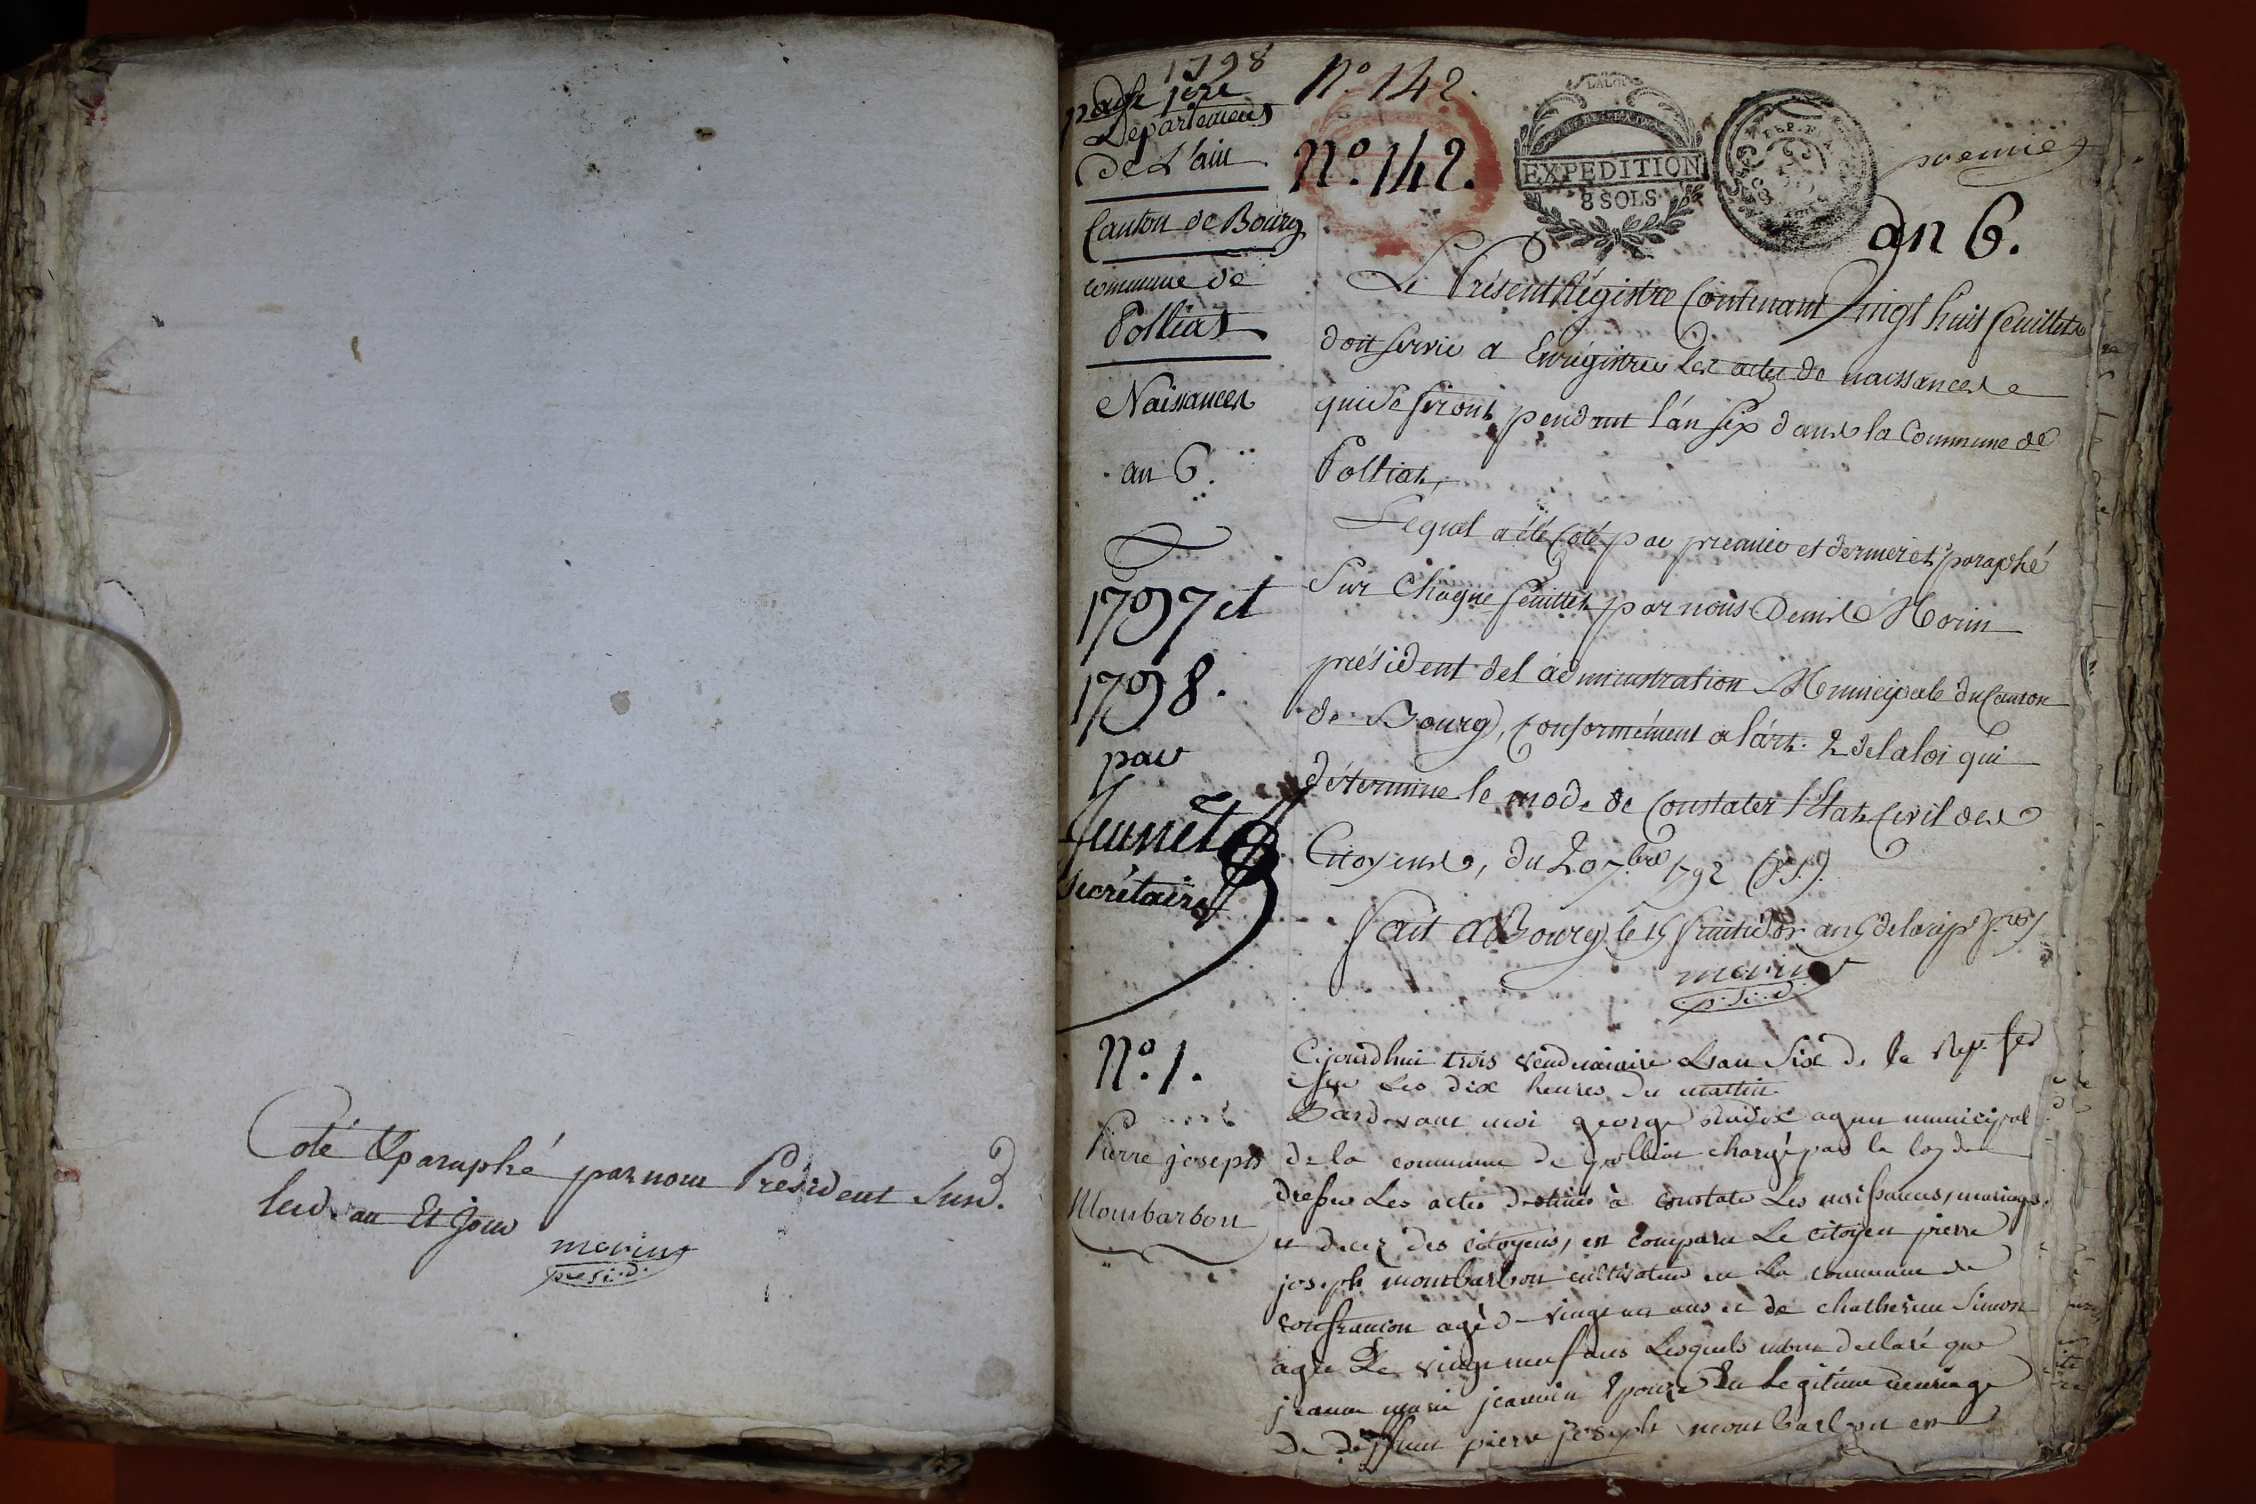 Coté & paraphé par nous Président susd.
lesd. an Et Jour
morin
presid.
1798
page 1ere
Departement
de L'ain
Canton de Bourg
commune de
Polliat
Naissances
an 6.
1797 et
1798.
par
Junet
secrétaire
N.º 142.
N.º 142.
LA LOI
EXPEDITION
8 SOLS
REP. FRA
premier
an 6.
Le Présent Régistre Contenant Vingt huit feuillets
doit servir a Enregistrer Les actes de naissances
qui se feront pendant l'an six dans la Commune de
Polliat,
Lequel a été Coté par premier et dernier et paraphé
Sur Chaque feuillet par nous Denis Morin
président de l'administration Municipale du Canton
de Bourg, Conformément a l'art. 2 de la loi qui
détermine le mode de Constater l'Etat Civil des
Citoyens, du 20 7.bre 1792 (v.s.).
Fait a Bourg le 15 fructidor an 5 de la rep. f.se
morin
p.si.d.
N.º 1.
Pierre joseph
Monbarbon
Cejourdhui trois vendemiaire Lan Six de la Rep. fse
sur Les dix heures du mattin
Pardevant moi george agent municipal
de la commune de polliat chargé par la loy de
dresser Les actes destinés à constater Les naissances, mariages
et decez des citoyens, est comparu Le citoyen pierre
joseph montbarbon cultivateur en La commune de
confrancon agé de vingt un ans et de chatherine Simon
agée De vingt neuf ans Lesquels mont declaré que
jeanne marie jeannin Epouze En Legitime mariage
De deffunt pierre joseph montbarbon en